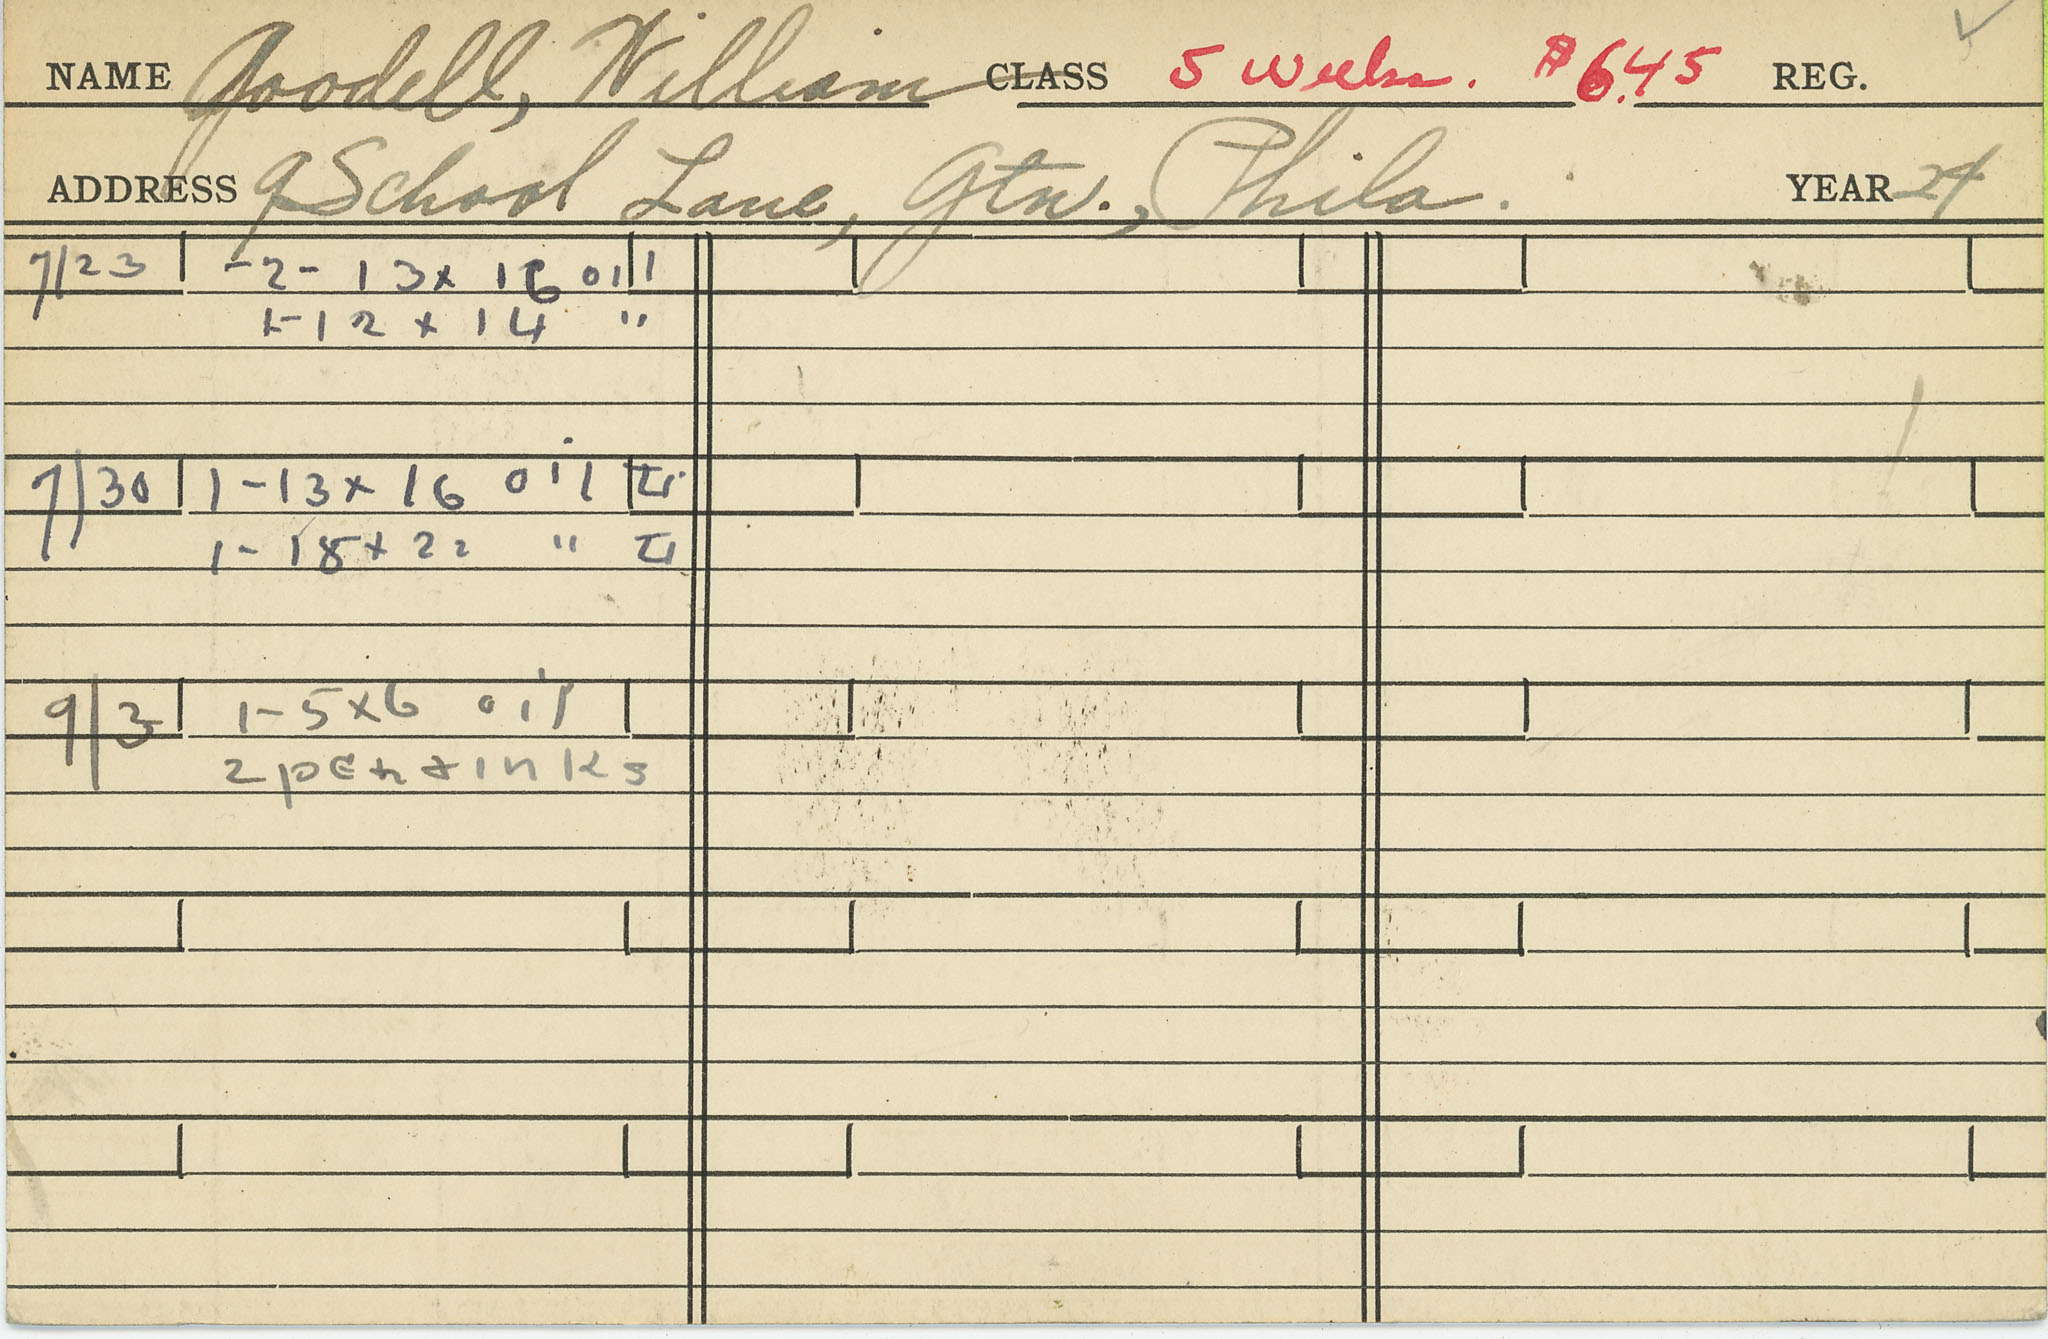 NAME Goodell, William CLASS 5 weeks. $6.45 REG.
ADDRESS 9 School Lane, Gtn., Phila. YEAR 24
7/23 -2- 13x16 oil
1-12x14 "
7/30 1-13x16 oil
1-18x22 "
9/3 1-5x6 oil
2 pen + inks